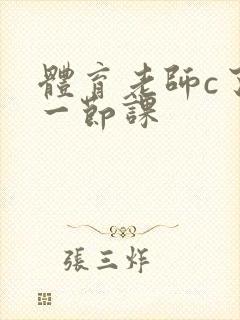 體育老師c了
一節課
張三炸